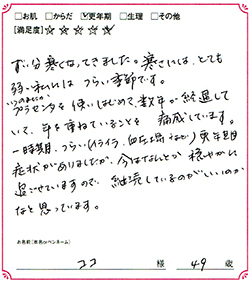 □お肌 □からだ ☑更年期 □生理 □その他
[満足度]☆☆☆☆☆
ずい分寒くなってきました。寒さには、とても
弱い私には つらい季節です。
いつのまにか
プラセンタを使いはじめて、数年が経過して
いて、年を重ねていることを 痛感しています。
一時期、つらい(イライラ、血圧上昇など)更年期
症状がありましたが、今はなんとか 穏やかに
過ごせていますので、継続しているのがいいのか
なと思っています。
お名前(本名orペンネーム)
ココ 様 49 歳